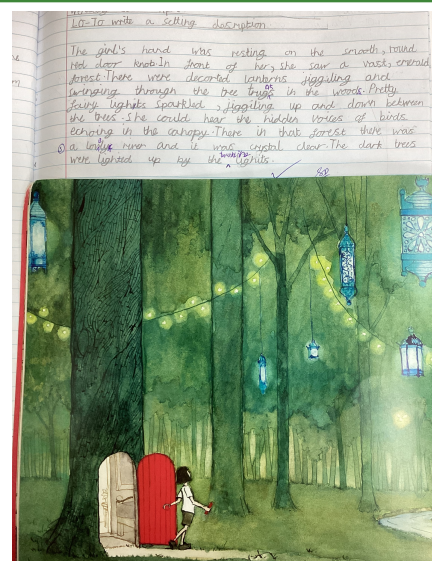 LO-To write a setting description.
The girl's hand was resting on the smooth, round
red door knob. In front of her, she saw a vast, emerald
forest. There were decorted lanterns jiggiling and
swinging through the tree in the woods. Pretty
fairy lights sparkled, jiggiling up and down between
the trees. She could hear the hidden voices of birds
echoing in the canopy. There in that forest there was
a river and it was crystal clear. The dark trees
were lighted up by the lights.